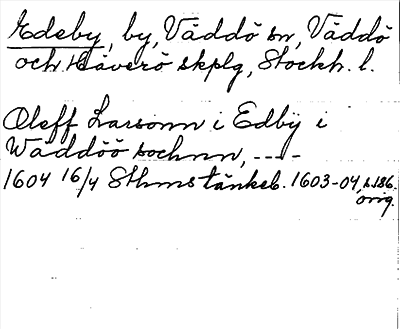 Edeby, by, Väddö sn, Väddö
och Häverö skplg, Stockh. l.
Oleff Larsonn i Edbÿ i
Wäddöö sochnn, ----
1604 16/4 Sthms tänkeb. 1603-04, s. 186.
orig.